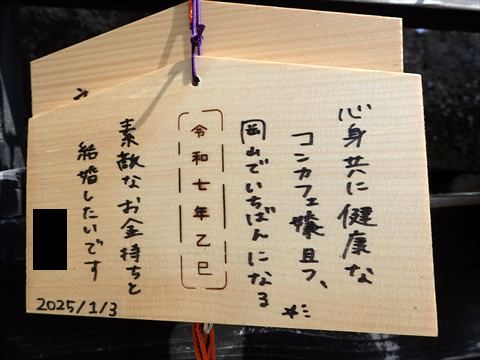 心身共に健康な
コンカフェ嬢且つ、
岡山でいちばんになる
令和七年乙巳
素敵なお金持ちと
結婚したいです
2025/1/3